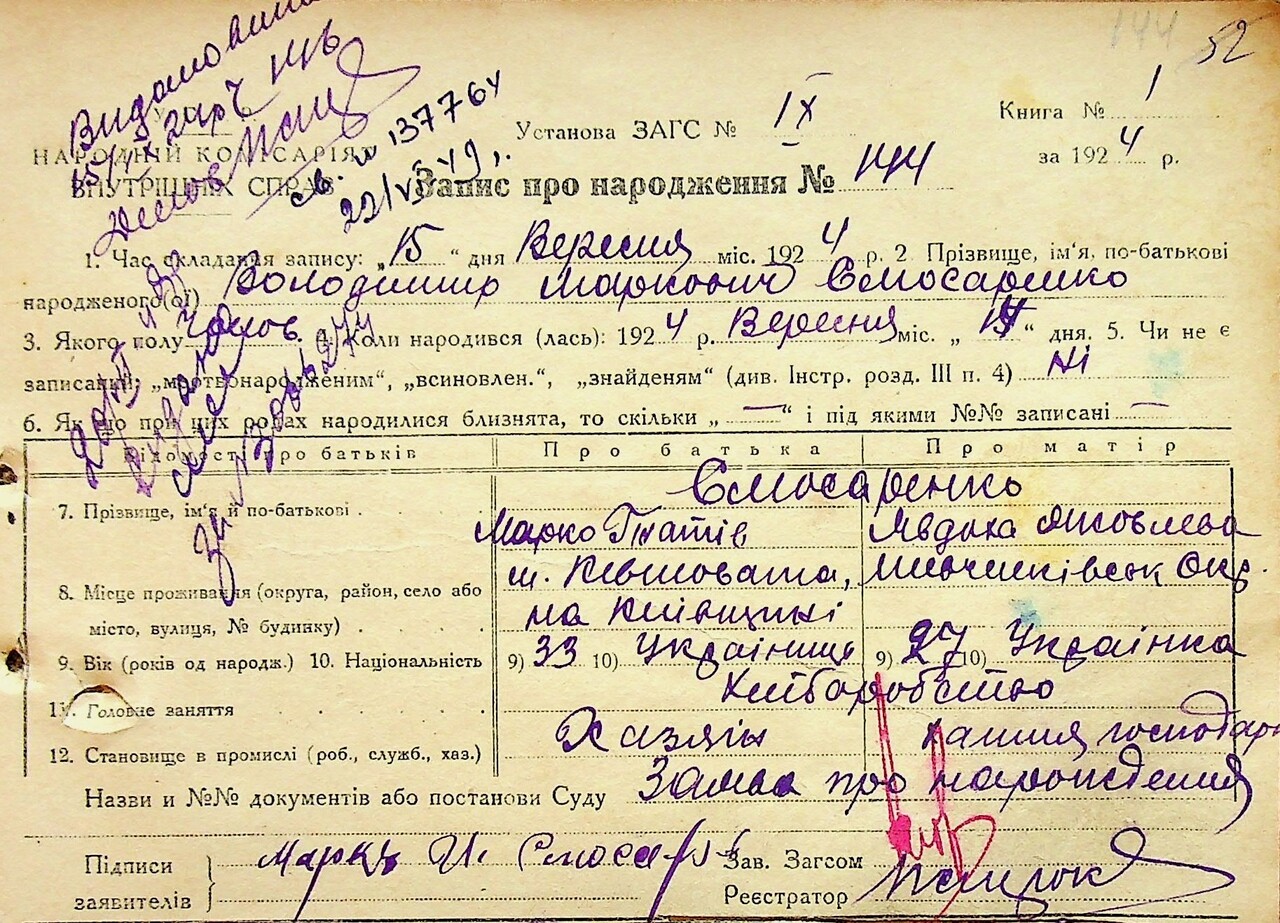 144 52
У. С. Р. Р.
НАРОДНІЙ КОМІСАРІЯТ
ВНУТРІШНІХ СПРАВ
св. № 137764
22/VI 49 г.
Установа ЗАГС № IX
Книга № 1
за 1924 р.
Запис про народження № 144
1. Час складання запису: „15“ дня Вересня міс. 1924 р. 2 Прізвище, ім‘я, по-батькові
народженого(ої) Володимир Маркович Слюсаренко
3. Якого полу чолов. 4. Коли народився (лась): 1924 р. Вересня міс. „14“ дня. 5. Чи не є
записаний: „мертвонародженим“, „всиновлен.“, „знайденям“ (див. Інстр. розд. III п. 4) Ні
6. Як що при цих родах народилися близнята, то скільки „—“ і під якими №№ записані —
Відомості про батьків Про батька Про матір
Слюсаренко
7. Прізвище, ім‘я й по-батькові . Марко Гнатів Явдоха Яковлева
8. Місце проживання (округа, район, село або м. Ківшовата, Окр.
місто, вулиця, № будинку) . . . . на Київщині
9. Вік (років од народж.) 10. Національність 9) 33 10) Українець 9) 27 10) Українка
11. Головне заняття . . . . . Хліборобство
12. Становище в промислі (роб., служб., хаз.) Хазяїн хатня господарк
Назви и №№ документів або постанови Суду Заява про народження
Підписи
заявителів
Зав. Загсом
Реєстратор